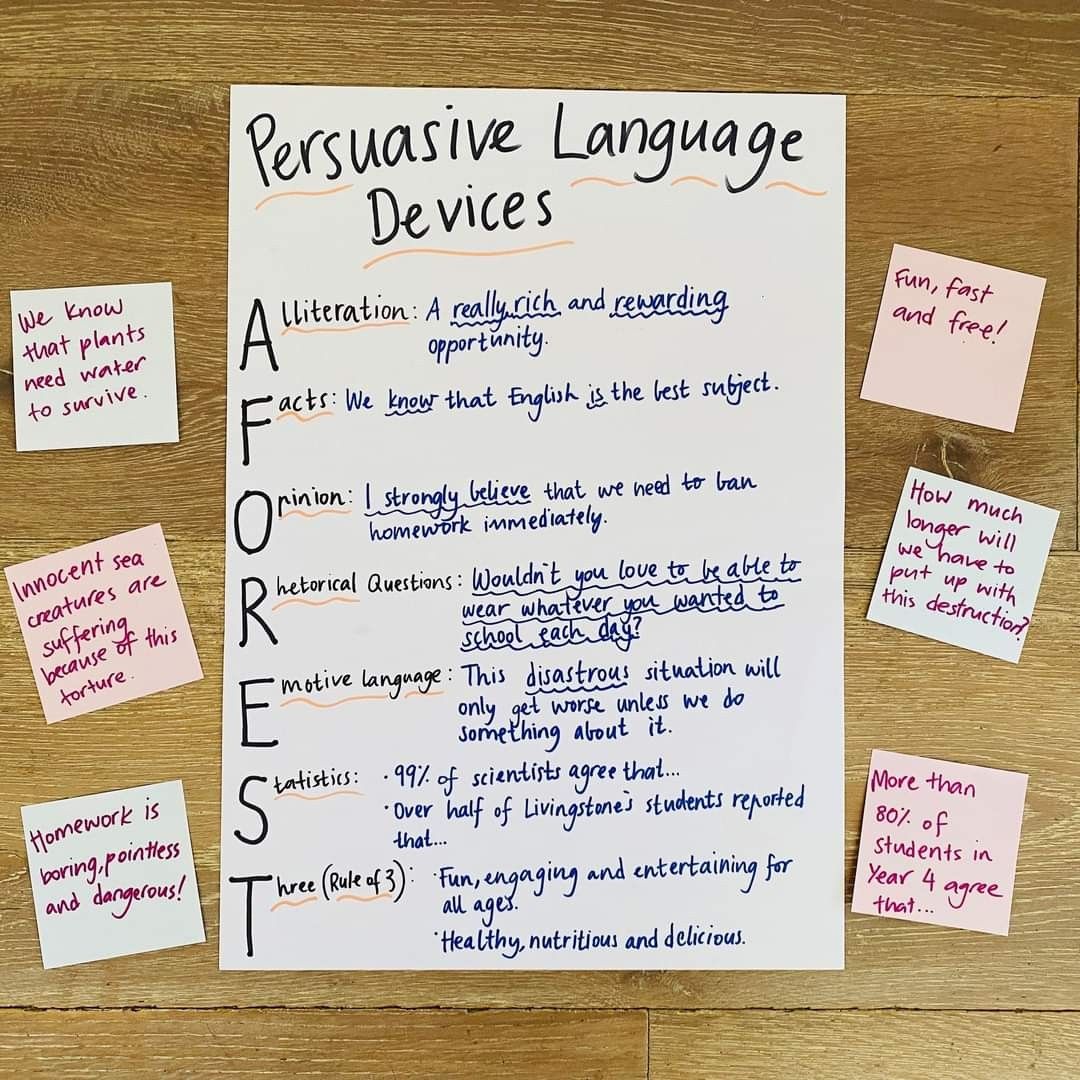 Persuasive Language
Devices
Alliteration: A really rich and rewarding
opportunity.
Facts: We know that English is the best subject.
Opinion: I strongly believe that we need to ban
homework immediately.
Rhetorical Questions: Wouldn't you love to be able to
wear whatever you wanted to
school each day?
Emotive language: This disastrous situation will
only get worse unless we do
something about it.
Statistics: · 99% of scientists agree that...
· Over half of Livingstone's students reported
that...
Three (Rule of 3): · Fun, engaging and entertaining for
all ages.
· Healthy, nutritious and delicious.
We know
that plants
need water
to survive.
Innocent sea
creatures are
suffering
because of this
torture.
Homework is
boring, pointless
and dangerous!
Fun, fast
and free!
How much
longer will
we have to
put up with
this destruction?
More than
80% of
students in
Year 4 agree
that...